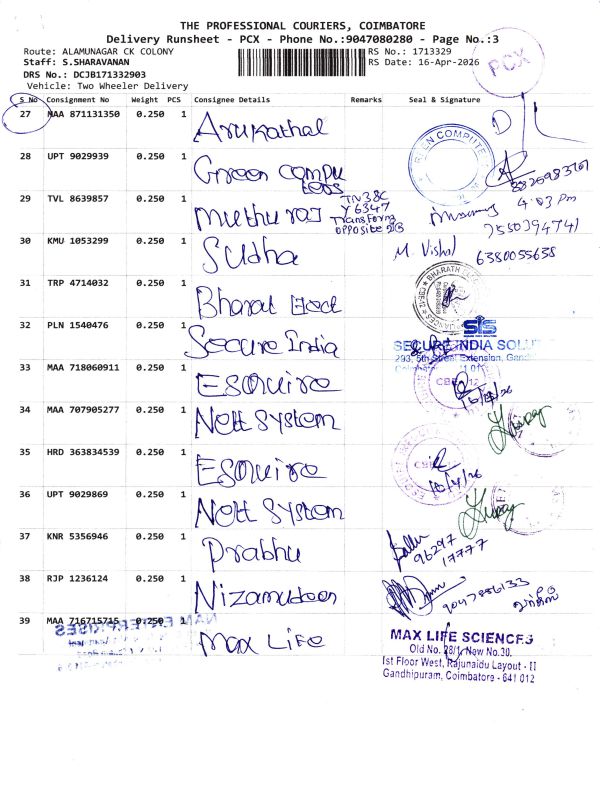 THE PROFESSIONAL COURIERS, COIMBATORE
Delivery Runsheet - PCX - Phone No.:9047080280 - Page No.:3
Route: ALAMUNAGAR CK COLONY
RS No.: 1713329
Staff: S.SHARAVANAN
RS Date: 16-Apr-2026
DRS No.: DCJB171332903
Vehicle: Two Wheeler Delivery
PCX
S No Consignment No Weight PCS Consignee Details Remarks Seal & Signature
27 MAA 871131350 0.250 1 Arukathal
28 UPT 9029939 0.250 1 Green Compu
ters
29 TVL 8639857 0.250 1 Muthuraj TN38C
Y6347
Transforma
opposite
4:03 Pm
7550394741
30 KMU 1053299 0.250 1 Sudha M. Vishal 6380055638
31 TRP 4714032 0.250 1 Bharat Elect
32 PLN 1540476 0.250 1 Secure India
SIS
SECURE INDIA SOLU
293, 5th Street Extension, Gandh
33 MAA 718060911 0.250 1 Esquire
CBE-12
16/4/26
34 MAA 707905277 0.250 1 Nett System
35 HRD 363834539 0.250 1 Esquire
16/4/26
36 UPT 9029869 0.250 1 Nett System
37 KNR 5356946 0.250 1 Prabhu
96297
17777
38 RJP 1236124 0.250 1 Nizamudeen
9047886133
39 MAA 716715715 0.250 1 Max Life
MAX LIFE SCIENCES
Old No. 28/1, New No.30,
1st Floor West, Rajunaidu Layout - II
Gandhipuram, Coimbatore - 641 012